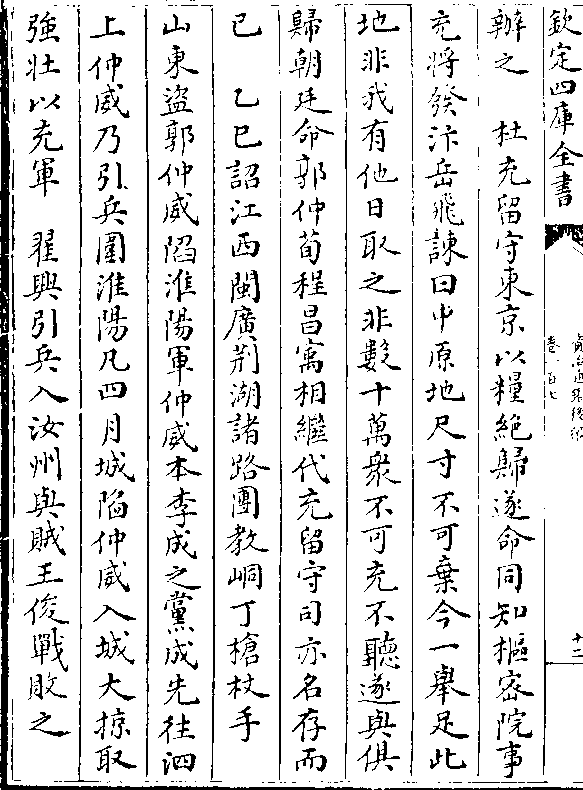 欽定四庫全書
卷一百七
十二
辦之　杜充留守東京以糧絶歸遂命同知樞密院事
充將發汴岳飛諫曰中原地尺寸不可棄今一舉足此
地非我有他日取之非數十萬衆不可充不聽遂與俱
歸朝廷命郭仲荀程昌寓相繼代充留守司亦名存而
已　乙巳詔江西閩廣荆湖諸路團教峒丁槍杖手
山東盜郭仲威䧟淮陽軍仲威本李成之黨成先往泗
上仲威乃引兵圍淮陽凡四月城䧟仲威入城大掠取
強壮以充軍　翟興引兵入汝州與賊王俊戰敗之